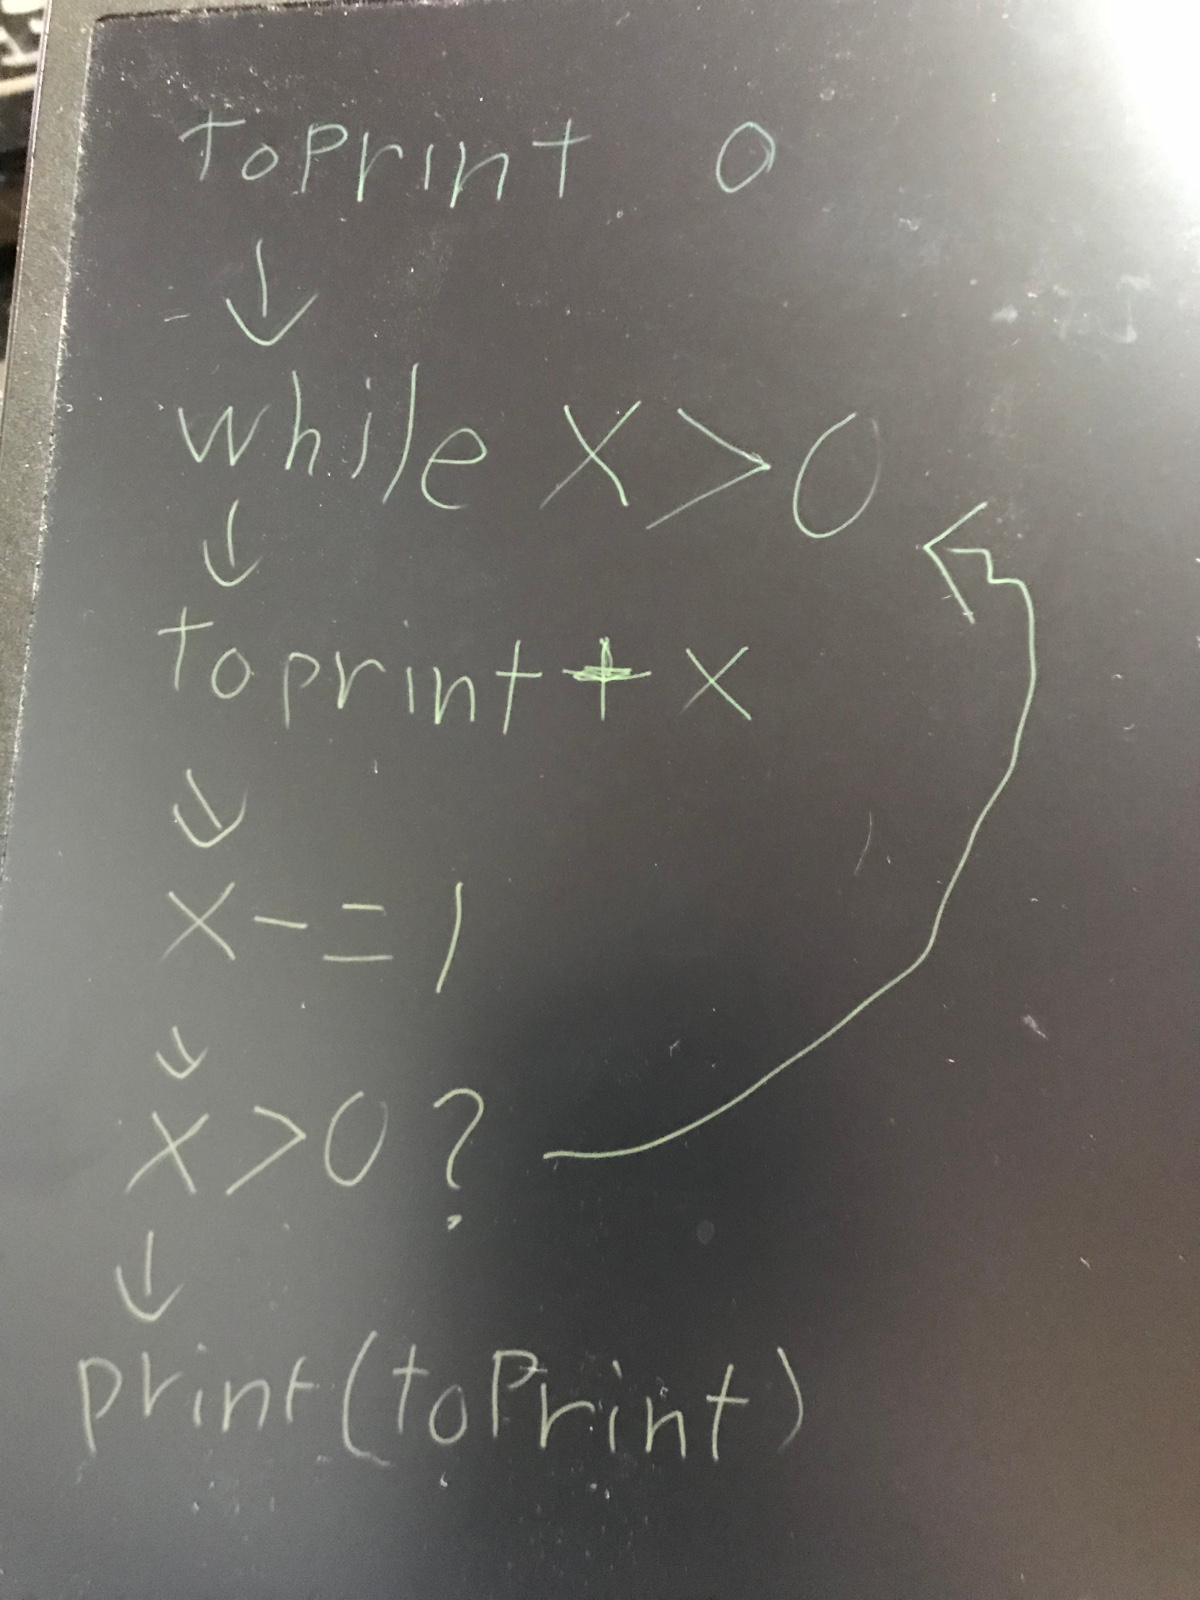 toPrint 0
while x>0
toprint + x
x-=1
x>0?
print(toPrint)